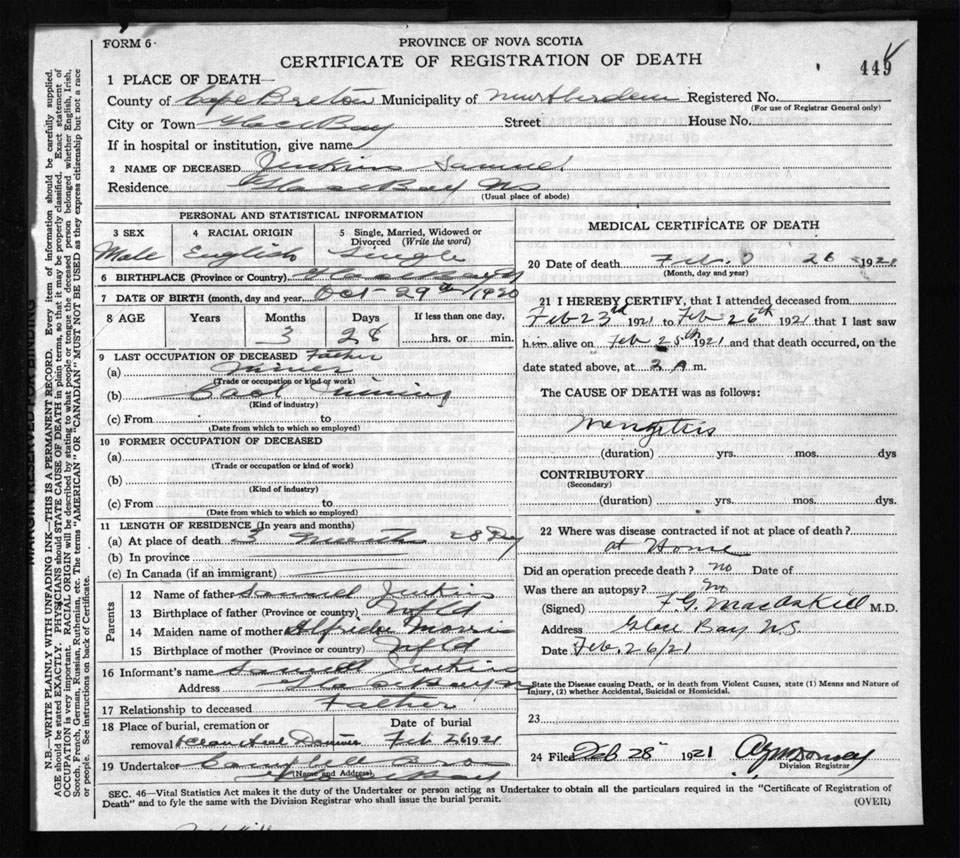 FORM 6
PROVINCE OF NOVA SCOTIA
CERTIFICATE OF REGISTRATION OF DEATH
449
1 PLACE OF DEATH—
County of Cape Breton Municipality of New Aberdeen Registered No.
(For use of Registrar General only)
City or Town Glace Bay Street House No.
If in hospital or institution, give name
2 NAME OF DECEASED Jenkins Samuel
Residence Glace Bay NS
(Usual place of abode)
PERSONAL AND STATISTICAL INFORMATION
3 SEX
Male
4 RACIAL ORIGIN
English
5 Single, Married, Widowed or Divorced (Write the word)
Single
6 BIRTHPLACE (Province or Country) Glace Bay
7 DATE OF BIRTH (month, day and year) Oct 29th 1920
8 AGE Years Months Days If less than one day,
3 28 hrs. or min.
9 LAST OCCUPATION OF DECEASED Father
(a) Miner
(Trade or occupation or kind or work)
(b) Coal Mining
(Kind of industry)
(c) From to
(Date from which to which so employed)
10 FORMER OCCUPATION OF DECEASED
(a)
(Trade or occupation or kind of work)
(b)
(Kind of industry)
(c) From to
(Date from which to which so employed)
11 LENGTH OF RESIDENCE (In years and months)
(a) At place of death 3 Months 28 Dy
(b) In province
(c) In Canada (if an immigrant)
Parents
12 Name of father Samuel Jenkins
13 Birthplace of father (Province or country) Nfld
14 Maiden name of mother Morris
15 Birthplace of mother (Province or country) Nfld
16 Informant's name Samuel Jenkins
Address Glace Bay
17 Relationship to deceased Father
18 Place of burial, cremation or removal
Date of burial
Feb 26 1921
19 Undertaker Campbell Bros
(Name and Address) Glace Bay
MEDICAL CERTIFICATE OF DEATH
20 Date of death Feb. 26 1921
(Month, day and year)
21 I HEREBY CERTIFY, that I attended deceased from
Feb 23rd 1921 to Feb 26th 1921 that I last saw
him alive on Feb 25th 1921 and that death occurred, on the
date stated above, at 3 A m.
The CAUSE OF DEATH was as follows:
Mengitis
(duration) yrs. mos. dys
CONTRIBUTORY
(Secondary)
(duration) yrs. mos. dys.
22 Where was disease contracted if not at place of death?
at Home
Did an operation precede death? no Date of
Was there an autopsy? No
(Signed) F.G. MacAskill M.D.
Address Glace Bay N.S.
Date Feb. 26/21
State the Disease causing Death, or in death from Violent Causes, state (1) Means and Nature of
Injury, (2) whether Accidental, Suicidal or Homicidal.
23
24 Filed Feb. 28 1921
Division Registrar
SEC. 46—Vital Statistics Act makes it the duty of the Undertaker or person acting as Undertaker to obtain all the particulars required in the "Certificate of Registration of
Death" and to fyle the same with the Division Registrar who shall issue the burial permit.
(OVER)
MARGIN RESERVED FOR BINDING
N.B.—WRITE PLAINLY WITH UNFADING INK—THIS IS A PERMANENT RECORD. Every item of information should be carefully supplied.
AGE should be stated EXACTLY. PHYSICIANS should STATE CAUSE OF DEATH in plain terms, so that it may be properly classified. Exact statement of
OCCUPATION is very important. RACIAL ORIGIN will be described by stating to what people or tongue the deceased person belonged whether English, Irish,
Scotch, French, German, Russian, Ruthenian, etc. The terms "AMERICAN" OR "CANADIAN" MUST NOT BE USED as they express citizenship but not a race
or people. See instructions on back of Certificate.